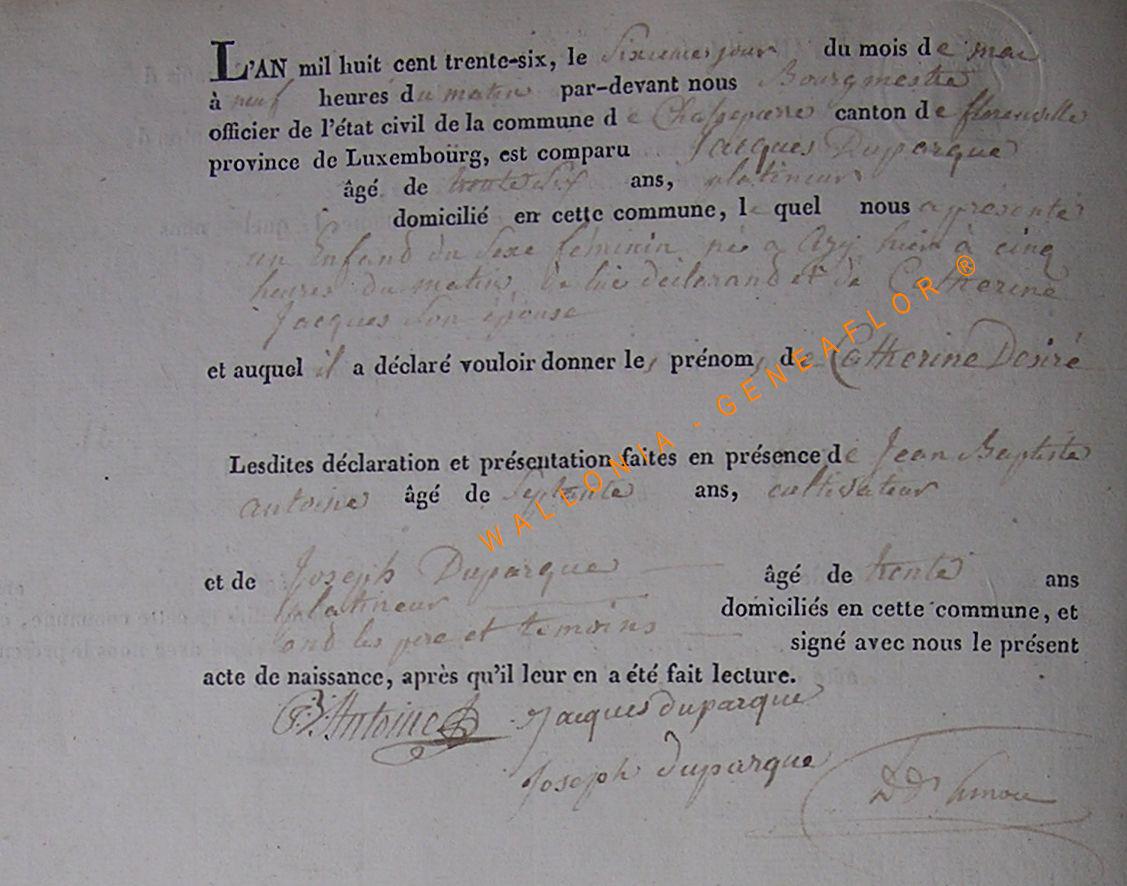 L'AN mil huit cent trente-six, le sixieme jour du mois de mai
à neuf heures du matin par-devant nous Bourgmestre
officier de l'état civil de la commune de Chassepierre canton de florenville
province de Luxembourg, est comparu Jacques Duparque
âgé de trente six ans, platineur
domicilié en cette commune, le quel nous a présenté
un Enfand du Sexe féminin né a Azy hier à cinq
heures du matin, de lui déclarand et de Catherine
Jacques Son épouse
et auquel il a déclaré vouloir donner les prénoms de Catherine Desiré
Lesdites déclaration et présentation faites en présence de Jean Baptiste
antoine âgé de Septante ans, cultivateur
et de Joseph Duparque âgé de trente ans
platineur domiciliés en cette commune, et
ond les pere et temoins signé avec nous le présent
acte de naissance, après qu'il leur en a été fait lecture.
J.B. Antoine Jacques duparque
Joseph duparque
WALLONIA - GENEAFLOR ®